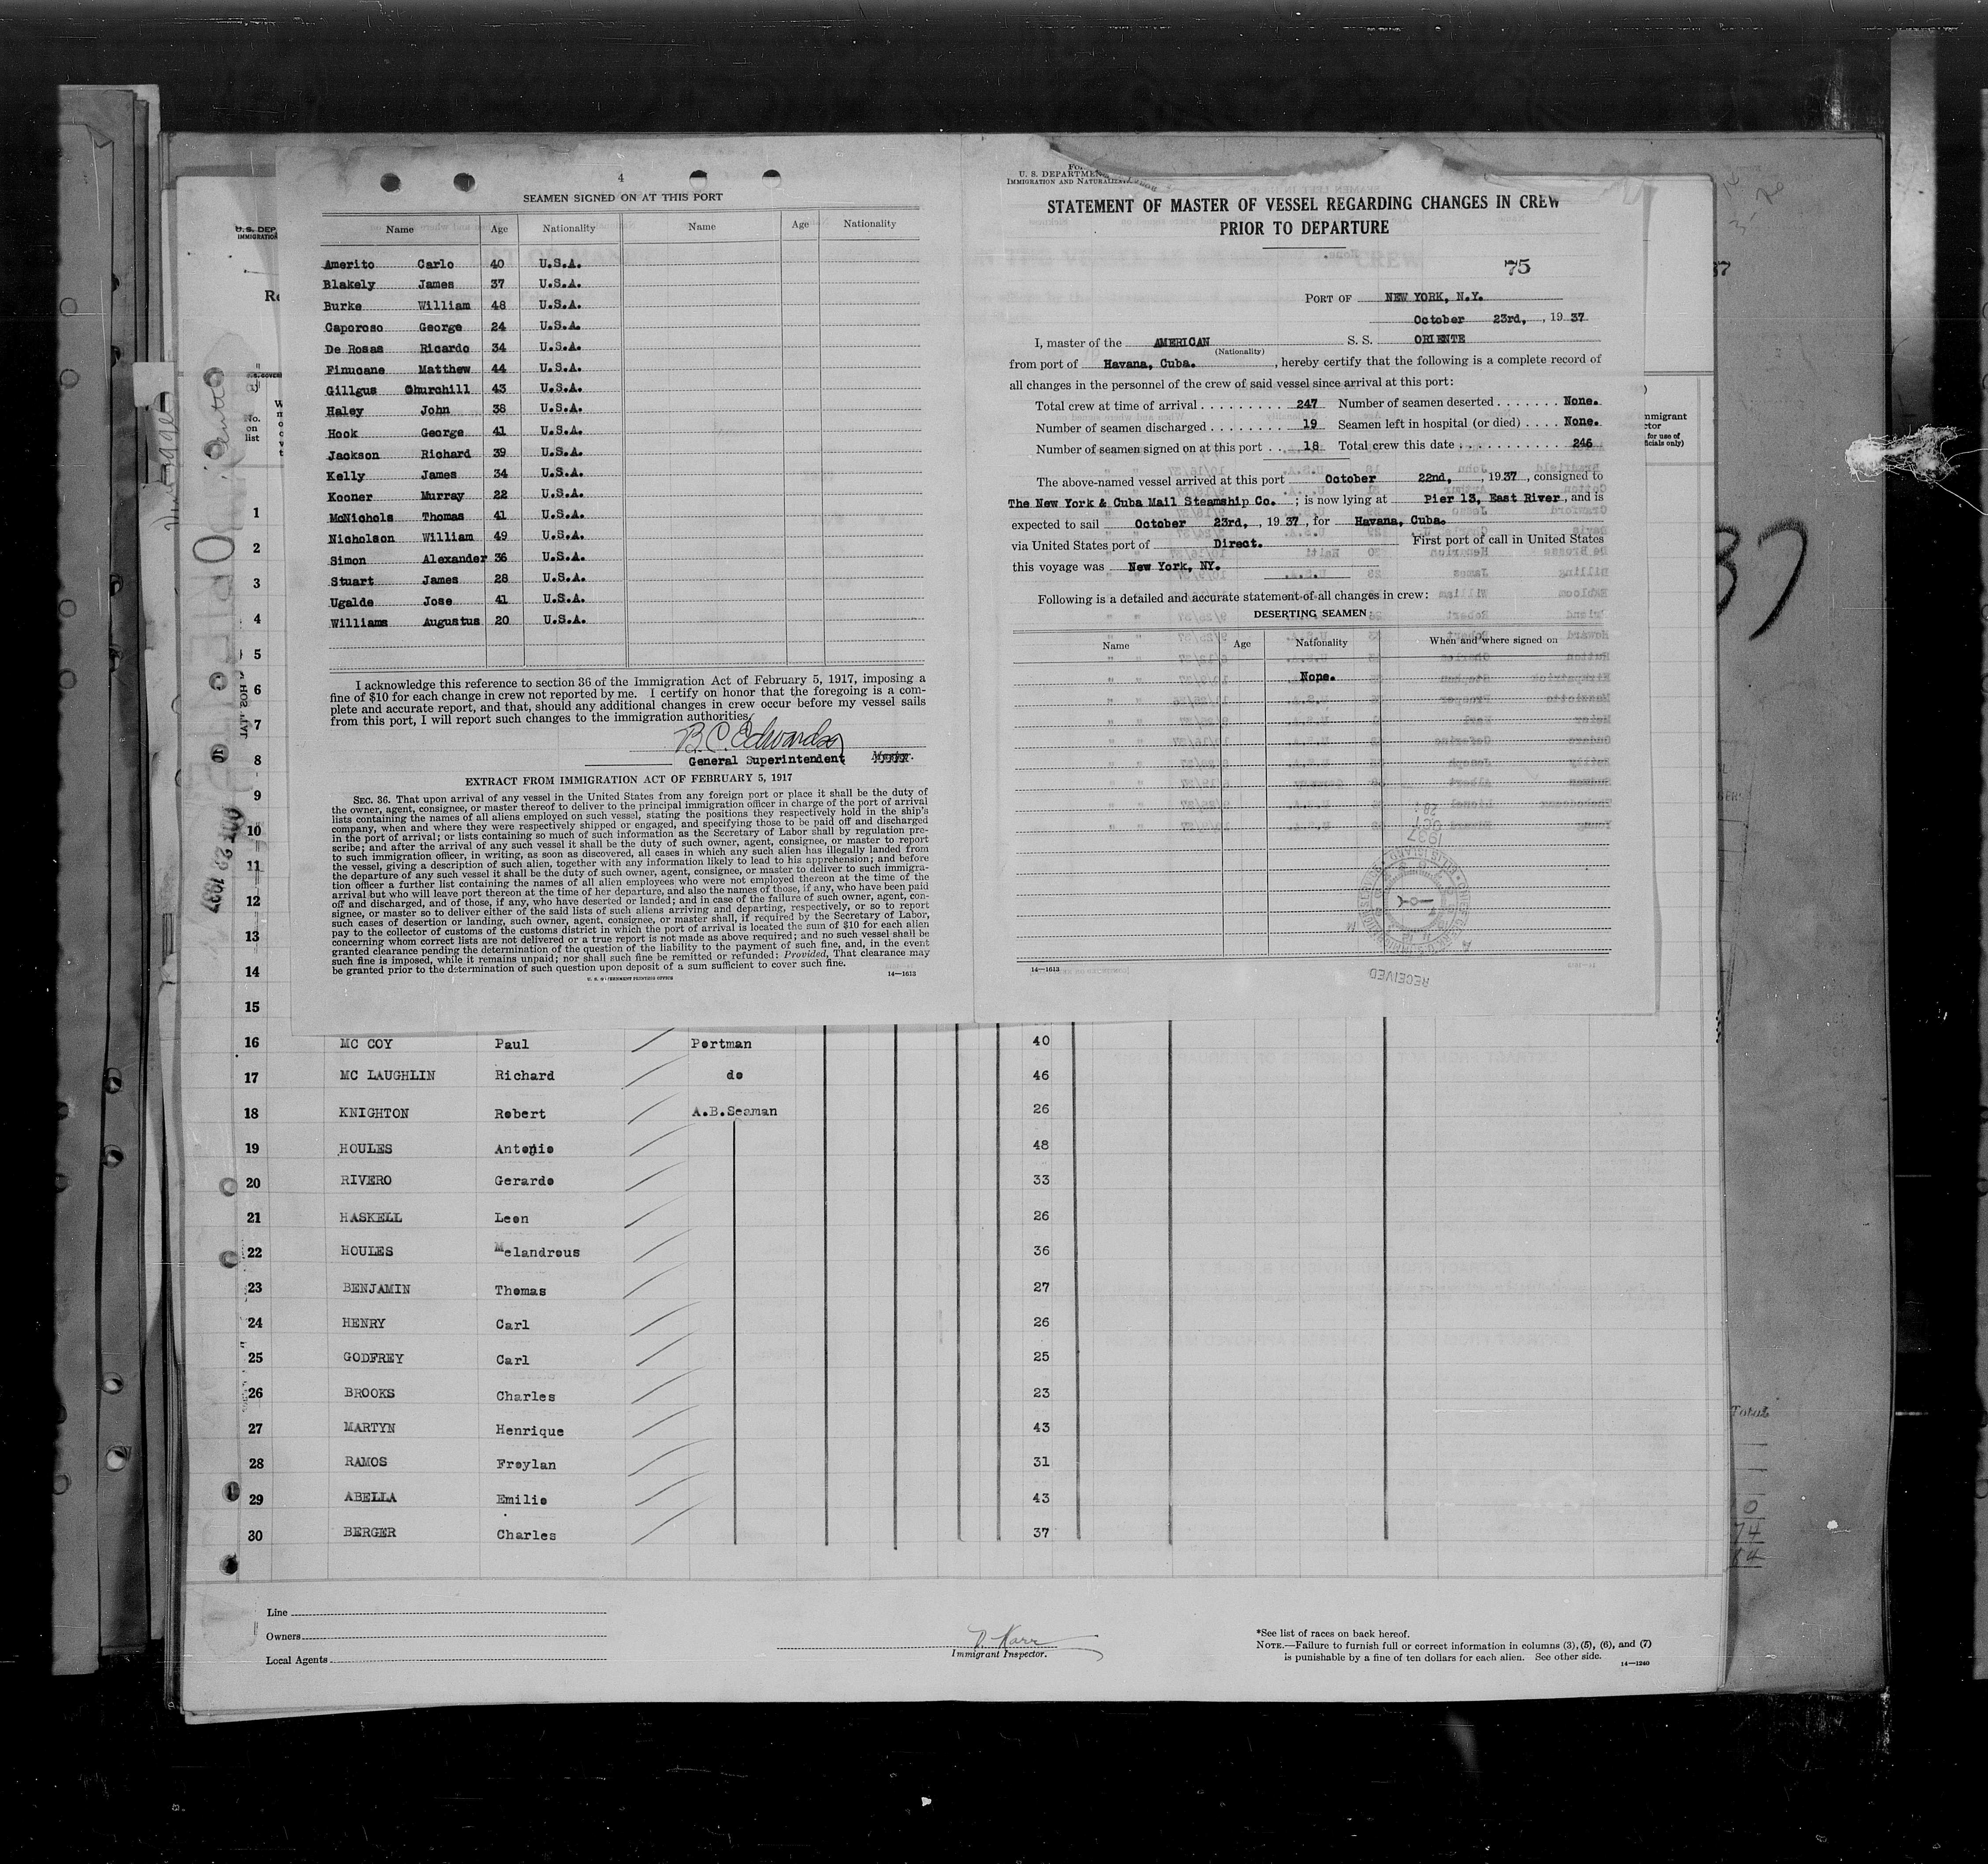 4
SEAMEN SIGNED ON AT THIS PORT
Name Age Nationality Name Age Nationality
Amerito Carlo 40 U.S.A.
Blakely James 37 U.S.A.
Burke William 48 U.S.A.
Caporoso George 24 U.S.A.
De Rosas Ricardo 34 U.S.A.
Finucane Matthew 44 U.S.A.
Gillgus Churchill 43 U.S.A.
Haley John 38 U.S.A.
Hook George 41 U.S.A.
Jackson Richard 39 U.S.A.
Kelly James 34 U.S.A.
Kooner Murray 22 U.S.A.
McNichols Thomas 41 U.S.A.
Nicholson William 49 U.S.A.
Simon Alexander 36 U.S.A.
Stuart James 28 U.S.A.
Ugalde Jose 41 U.S.A.
Williams Augustus 20 U.S.A.
I acknowledge this reference to section 36 of the Immigration Act of February 5, 1917, imposing a
fine of $10 for each change in crew not reported by me. I certify on honor that the foregoing is a com-
plete and accurate report, and that, should any additional changes in crew occur before my vessel sails
from this port, I will report such changes to the immigration authorities.
B. C. Edwards
General Superintendent
EXTRACT FROM IMMIGRATION ACT OF FEBRUARY 5, 1917
SEC. 36. That upon arrival of any vessel in the United States from any foreign port or place it shall be the duty of
the owner, agent, consignee, or master thereof to deliver to the principal immigration officer in charge of the port of arrival
lists containing the names of all aliens employed on such vessel, stating the positions they respectively hold in the ship's
company, when and where they were respectively shipped or engaged, and specifying those to be paid off and discharged
in the port of arrival; or lists containing so much of such information as the Secretary of Labor shall by regulation pre-
scribe; and after the arrival of any such vessel it shall be the duty of such owner, agent, consignee, or master to report
to such immigration officer, in writing, as soon as discovered, all cases in which any such alien has illegally landed from
the vessel, giving a description of such alien, together with any information likely to lead to his apprehension; and before
the departure of any such vessel it shall be the duty of such owner, agent, consignee, or master to deliver to such immigra-
tion officer a further list containing the names of all alien employees who were not employed thereon at the time of the
arrival but who will leave port thereon at the time of her departure, and also the names of those, if any, who have been paid
off and discharged, and of those, if any, who have deserted or landed; and in case of the failure of such owner, agent, con-
signee, or master so to deliver either of the said lists of such aliens arriving and departing, respectively, or so to report
such cases of desertion or landing, such owner, agent, consignee, or master shall, if required by the Secretary of Labor,
pay to the collector of customs of the customs district in which the port of arrival is located the sum of $10 for each alien
concerning whom correct lists are not delivered or a true report is not made as above required; and no such vessel shall be
granted clearance pending the determination of the question of the liability to the payment of such fine, and, in the event
such fine is imposed, while it remains unpaid; nor shall such fine be remitted or refunded: Provided, That clearance may
be granted prior to the determination of such question upon deposit of a sum sufficient to cover such fine.
U. S. GOVERNMENT PRINTING OFFICE 14—1613
U. S. DEPARTMEN
IMMIGRATION AND NATURALIZATION
STATEMENT OF MASTER OF VESSEL REGARDING CHANGES IN CREW
PRIOR TO DEPARTURE
75
PORT OF NEW YORK, N.Y.
October 23rd, , 19 37
I, master of the AMERICAN S. S. ORIENTE
(Nationality)
from port of Havana, Cuba. , hereby certify that the following is a complete record of
all changes in the personnel of the crew of said vessel since arrival at this port:
Total crew at time of arrival . . . . . . . . . . 247 Number of seamen deserted . . . . . . . None.
Number of seamen discharged . . . . . . . . 19 Seamen left in hospital (or died) . . . . None.
Number of seamen signed on at this port . . 18 Total crew this date . . . . . . . . . . . 246
The above-named vessel arrived at this port October 22nd, , 19 37 , consigned to
The New York & Cuba Mail Steamship Co. ; is now lying at Pier 13, East River , and is
expected to sail October 23rd, , 19 37 , for Havana, Cuba.
via United States port of Direct. First port of call in United States
this voyage was New York, NY.
Following is a detailed and accurate statement of all changes in crew:
DESERTING SEAMEN
Name Age Nationality When and where signed on
None.
14—1613
RECEIVED
U. S. DEP
IMMIGRATION
No.
on
list
Oriente
OCT 22 1937
37
1
2
3
4
5
6
7
8
9
10
11
12
13
14
15
16 MC COY Paul Portman 40
17 MC LAUGHLIN Richard do 46
18 KNIGHTON Robert A.B.Seaman 26
19 HOULES Antonio 48
20 RIVERO Gerardo 33
21 HASKELL Leon 26
22 HOULES Melandrous 36
23 BENJAMIN Thomas 27
24 HENRY Carl 26
25 GODFREY Carl 25
26 BROOKS Charles 23
27 MARTYN Henrique 43
28 RAMOS Froylan 31
29 ABELLA Emilio 43
30 BERGER Charles 37
Total
Line
Owners
Local Agents
D. Karr
Immigrant Inspector.
*See list of races on back hereof.
NOTE.—Failure to furnish full or correct information in columns (3), (5), (6), and (7)
is punishable by a fine of ten dollars for each alien. See other side.
14—1240